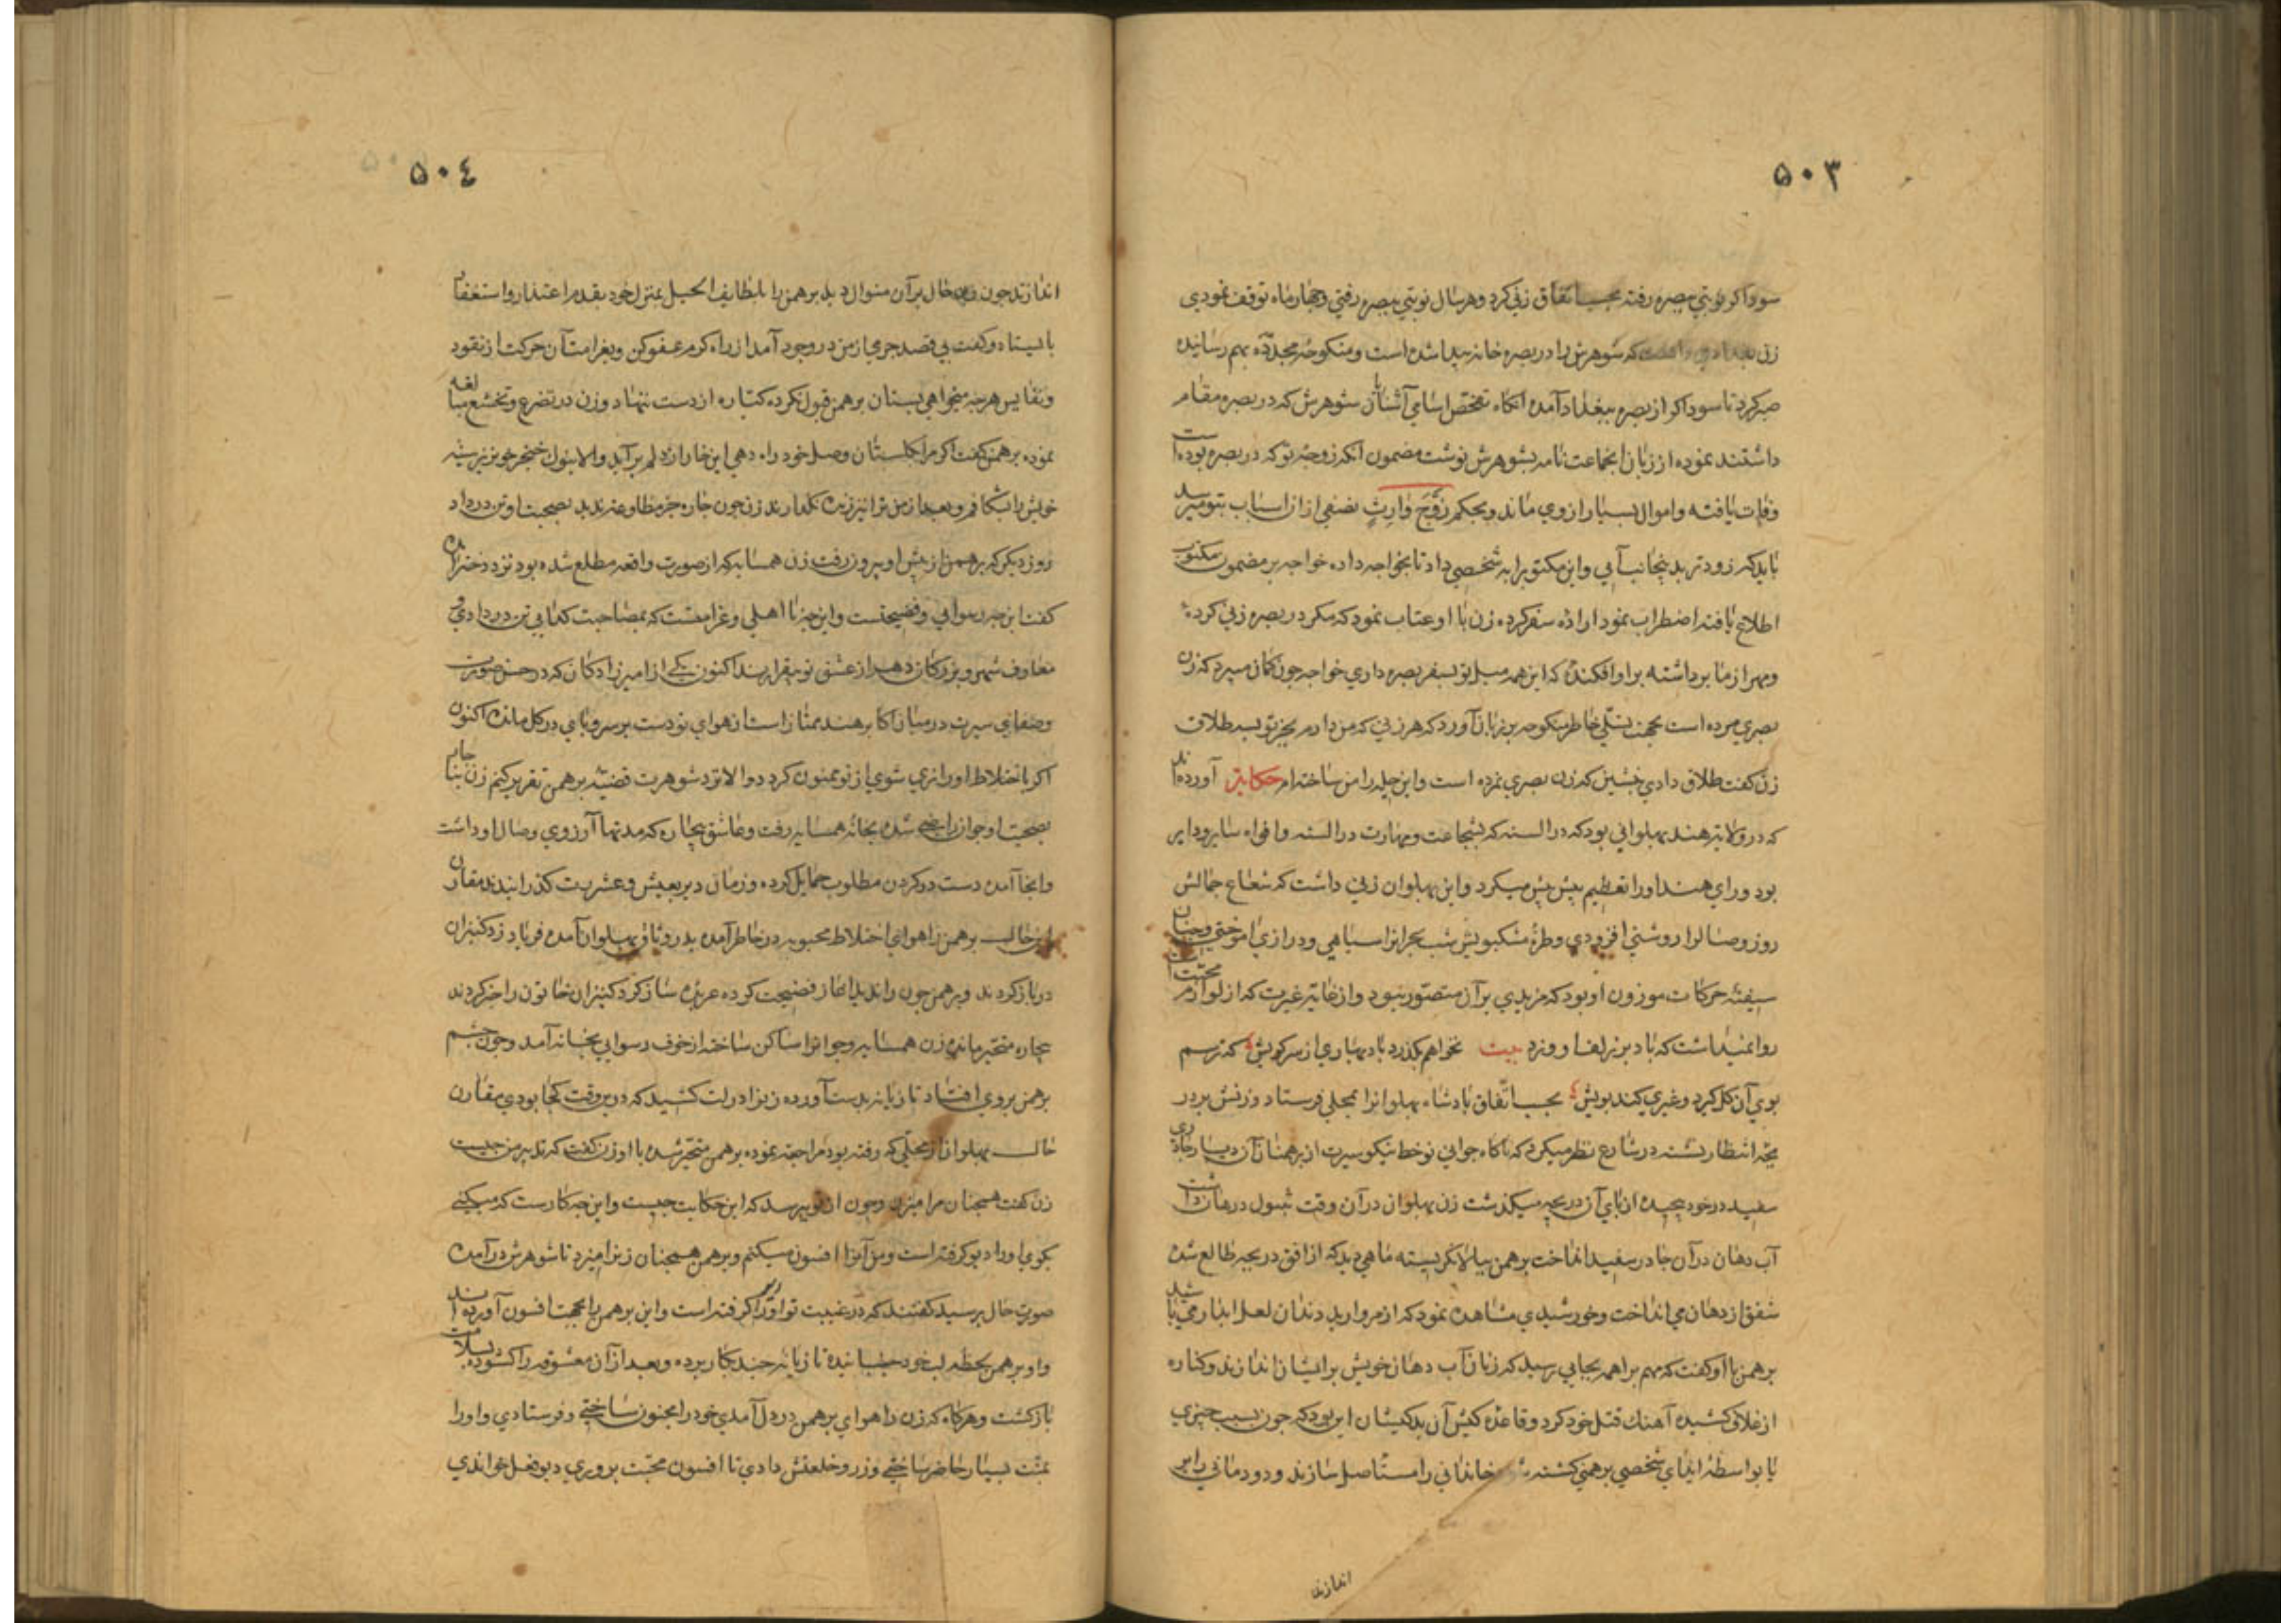 ۵۰۳
سوداکر نوبتی ببصره رفته بحسب اتفاق زنی کرد و هر سال نوبتی ببصره رفتی و چهار ماه توقف نمودی
زن که شوهرش را در بصره خانه پیدا شده است و منکوحهٔ مجدّده بهم رسانیده
صبر کرد تا سوداکر از بصره ببغداد آمده انکاه تفحّص اسامی آشنایان شوهرش که در بصره مقام
داشتند نموده از زبان انجماعت نامه بشوهرش نوشت مضمون انکه زوجهٔ تو که در بصره بوده است
وفات یافته و اموال بسیار از وی ماند و بحکم زَوْجَ وٰارِثٍ نصفی ازان اسباب بتو میرسد
باید که زودتر بدینجانب آیی و این مکتوبرا به شخصی داد تا بخواجه داده خواجه بر مضمون مکتوب
اطلاع یافته اضطراب نمود اراده سفر کرده زن با او عتاب نمود که مکر در بصره زنی کردهٔ
و مهر از ما برداشته بر او افکندهٔ که این همه میل تو بسفر بصره داری خواجه چون کمان میبرد که زن
بصری مرده است بجهت تسلّی خاطر منکوحه بر زبان آورد که هر زنی که من دارم بجز تو بسه طلاق
زن کفت طلاق دادی بنشین که زن بصری نمرده است و این حیله را من ساخته ام حکایة آورده اند
که در ولایة هند پهلوانی بود که در السنه که بشجاعت و مهارت در السنه و افواه سایر و دایر
بود و رای هند او را تعظیم بیش بیش میکرد و این پهلوان زنی داشت که شعاع جمالش
روز وصالرا روشنی افزودی و طرهٔ مشکبویش شب هجرانرا سیاهی و درازی آموختی و چنان
شیفتهٔ حرکات موزون او بود که مزیدی بر آن متصوّر نبود و از غایة غیرت که از لوازم محبّت است
روا نمیداشت که باد بر زلف او وزد بیت نخواهم بکذرد باد بهاری از سر کویش که ترسم
بوی آن کل کیرد و غیری کند بویش بحسب اتّفاق پادشاه پهلوانرا بمحلی فرستاد و زنش بر در
یچهٔ انتظار نشسته در شارع نظر میکرد که ناکاه جوانی نوخط نیکو سیرت از برهمنان آن دیار چادری
سفید در خود پیچیده از پای آن دریچه میکذشت زن پهلوان در آن وقت تنبول در دهان داشت
آب دهان در آن چادر سفید انداخت برهمن ببالا نکریسته ماهی دید که از افق دریچه طالع شده
شفق از دهان می انداخت و خورشیدی مشاهده نمود که از مروارید دندان لعل ابدار می پاشید
برهمن با او کفت که مهم براهمه بجایی رسید که زنان آب دهان خویش بر ایشان اندازند و کتاره
از غلاف کشیده آهنك قتل خود کرد و قاعدهٔ کیش آن بدکیشان این بود که چون بسبب چیزی
یا بواسطهٔ ایذای شخصی برهمنی کشته خاندانی را مستاصل سازند و دودمانی را بر
اندازند
۵۰٤
اندازند چون زن حال بر آن منوال دید برهمن را بلطایف الحیل بمنزل خود بقدم اعتذار و استغفار
بایستاد و کفت بی قصد جرمی از من در وجود آمد از راه کرم عفو کن و بغرامت آن حرکت از نقود
و نفایس هرچه میخواهی بستان برهمن قبول نکرده کتاره از دست ننهاد و زن در تضرع و تخشع مبالغه
نموده برهمن کفت اکر مرا بکلستان وصل خود راه دهی این خار از دلم بر آید والا بنوك خنجر خونریز سینه
خویش را بشکافم و بعد از من ترا نیز زنده نکذارند زن چون چاره جز مطاوعه ندید بصحبت او تن در داد
روز دیکر که برهمن از پیش او بیرون رفت زن همسایه که از صورت واقعه مطلع شده بود نزد دختر آمد
کفت این چه رسوایی و فضیحتست و این چه نااهلی و غرامتست که بمصاحبت کدایی تن در دادی و
معارف شهر و بزرکان دهر از عشق تو بیقرارند اکنون یکی از امیرزادکان که در حسن صورت
و صفای سیرت در میان اکابر هند ممتاز است از هوای تو دست بر سر و پای در کل مانده اکنون
اکر باختلاط او رانری شوی از تو ممنون کردد والا نزد شوهرت قضیهٔ برهمن تقریر کنم زن بناچار
بصحبت او جوان راضی شده بخانهٔ همسایه رفت و عاشق بیچاره که مدتها آرزوی وصال او داشت
وانجا آمده دست در کردن مطلوب حمایل کرده و زمان دیر بعیش و عشرت کذرانیدند مقارن
این حال برهمن را هوای اختلاط محبوبه در خاطر آمده بدر وثاق پهلوان آمده فریاد زد کنیزان
در باز کردند و برهمن چون را ندید اغاز فضیحت کرده عربده ساز کرد کنیزان خاتون را خبر کردند
بیچاره متحیّر مانده زن همسایه و جوانرا ساکن ساخته از خوف رسوایی بخانه آمد و چون چشم
برهمن بروی افتاد تازیانه بدست آورده زنرا در لت کشید که درین وقت کجا بودی مقارن
حال پهلوان از محلّی که رفته بود مراجعه نموده برهمن متحیّر شده با او زن کفت که تدبیر من چیست
زن کفت همچنان مرا میزن و چون از تو پرسد که این حکایت چیست و این چه کارست که میکنی
بکوی او را دیو کرفته است و من آنرا افسون میکنم و برهمن همچنان زنرا میزد تا شوهرش در آمده
صورت حال پرسید کفتند که در غیبت تو او را کرفته است و این برهمن را بجهت افسون آورده اند
و او برهمن لحظه لب خود جنبانیده تازیانه چند بکار برده و بعد از آن معشوقه را کشوده بسلامت
باز کشت و هرکاه که زن را هوای برهمن در دل آمدی خود را مجنون ساختی و فرستادی و او را
بمنّت بسیار حاضر ساختی و زر و خلعتش دادی تا افسون محبّت بر وری دیو فعل خواندی